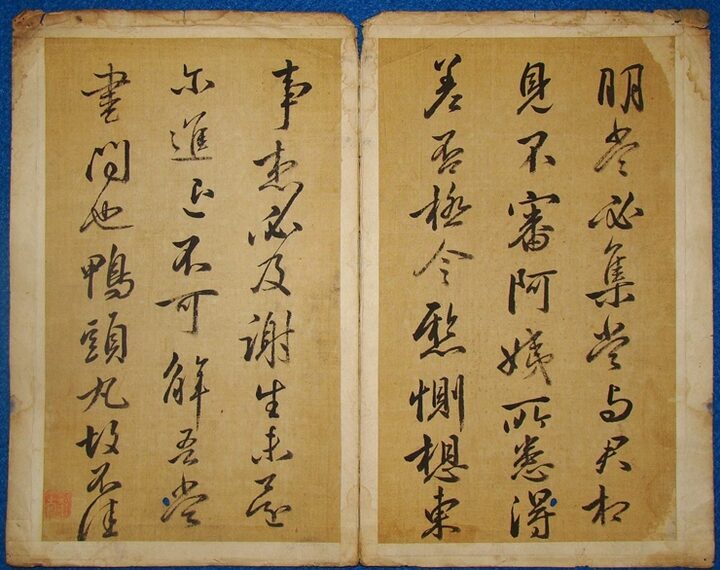 明當必集當与君相
見不審阿姨所患得
差否極令懸惻想東
事悉必及謝生未還
尓進退不可解吾當
書問也鴨頭丸故不佳